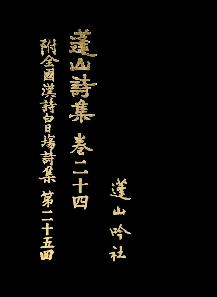 蓬山詩集 卷二十四
附全國漢詩白日場詩集 第二十五回
蓬山吟社